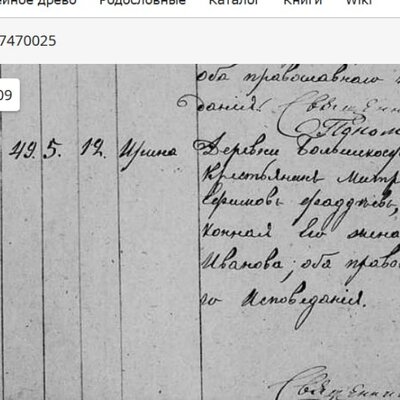 йное древо Родословные Каталог Книги Wiki
7470025
09
оба православного
данія. Священни
49. 5. 12. Ирина Деревни
Крестьянинъ Митр
Ефимовъ Фаддѣевъ,
конная его жена
Иванова, оба право
го Исповеданія.
Священни